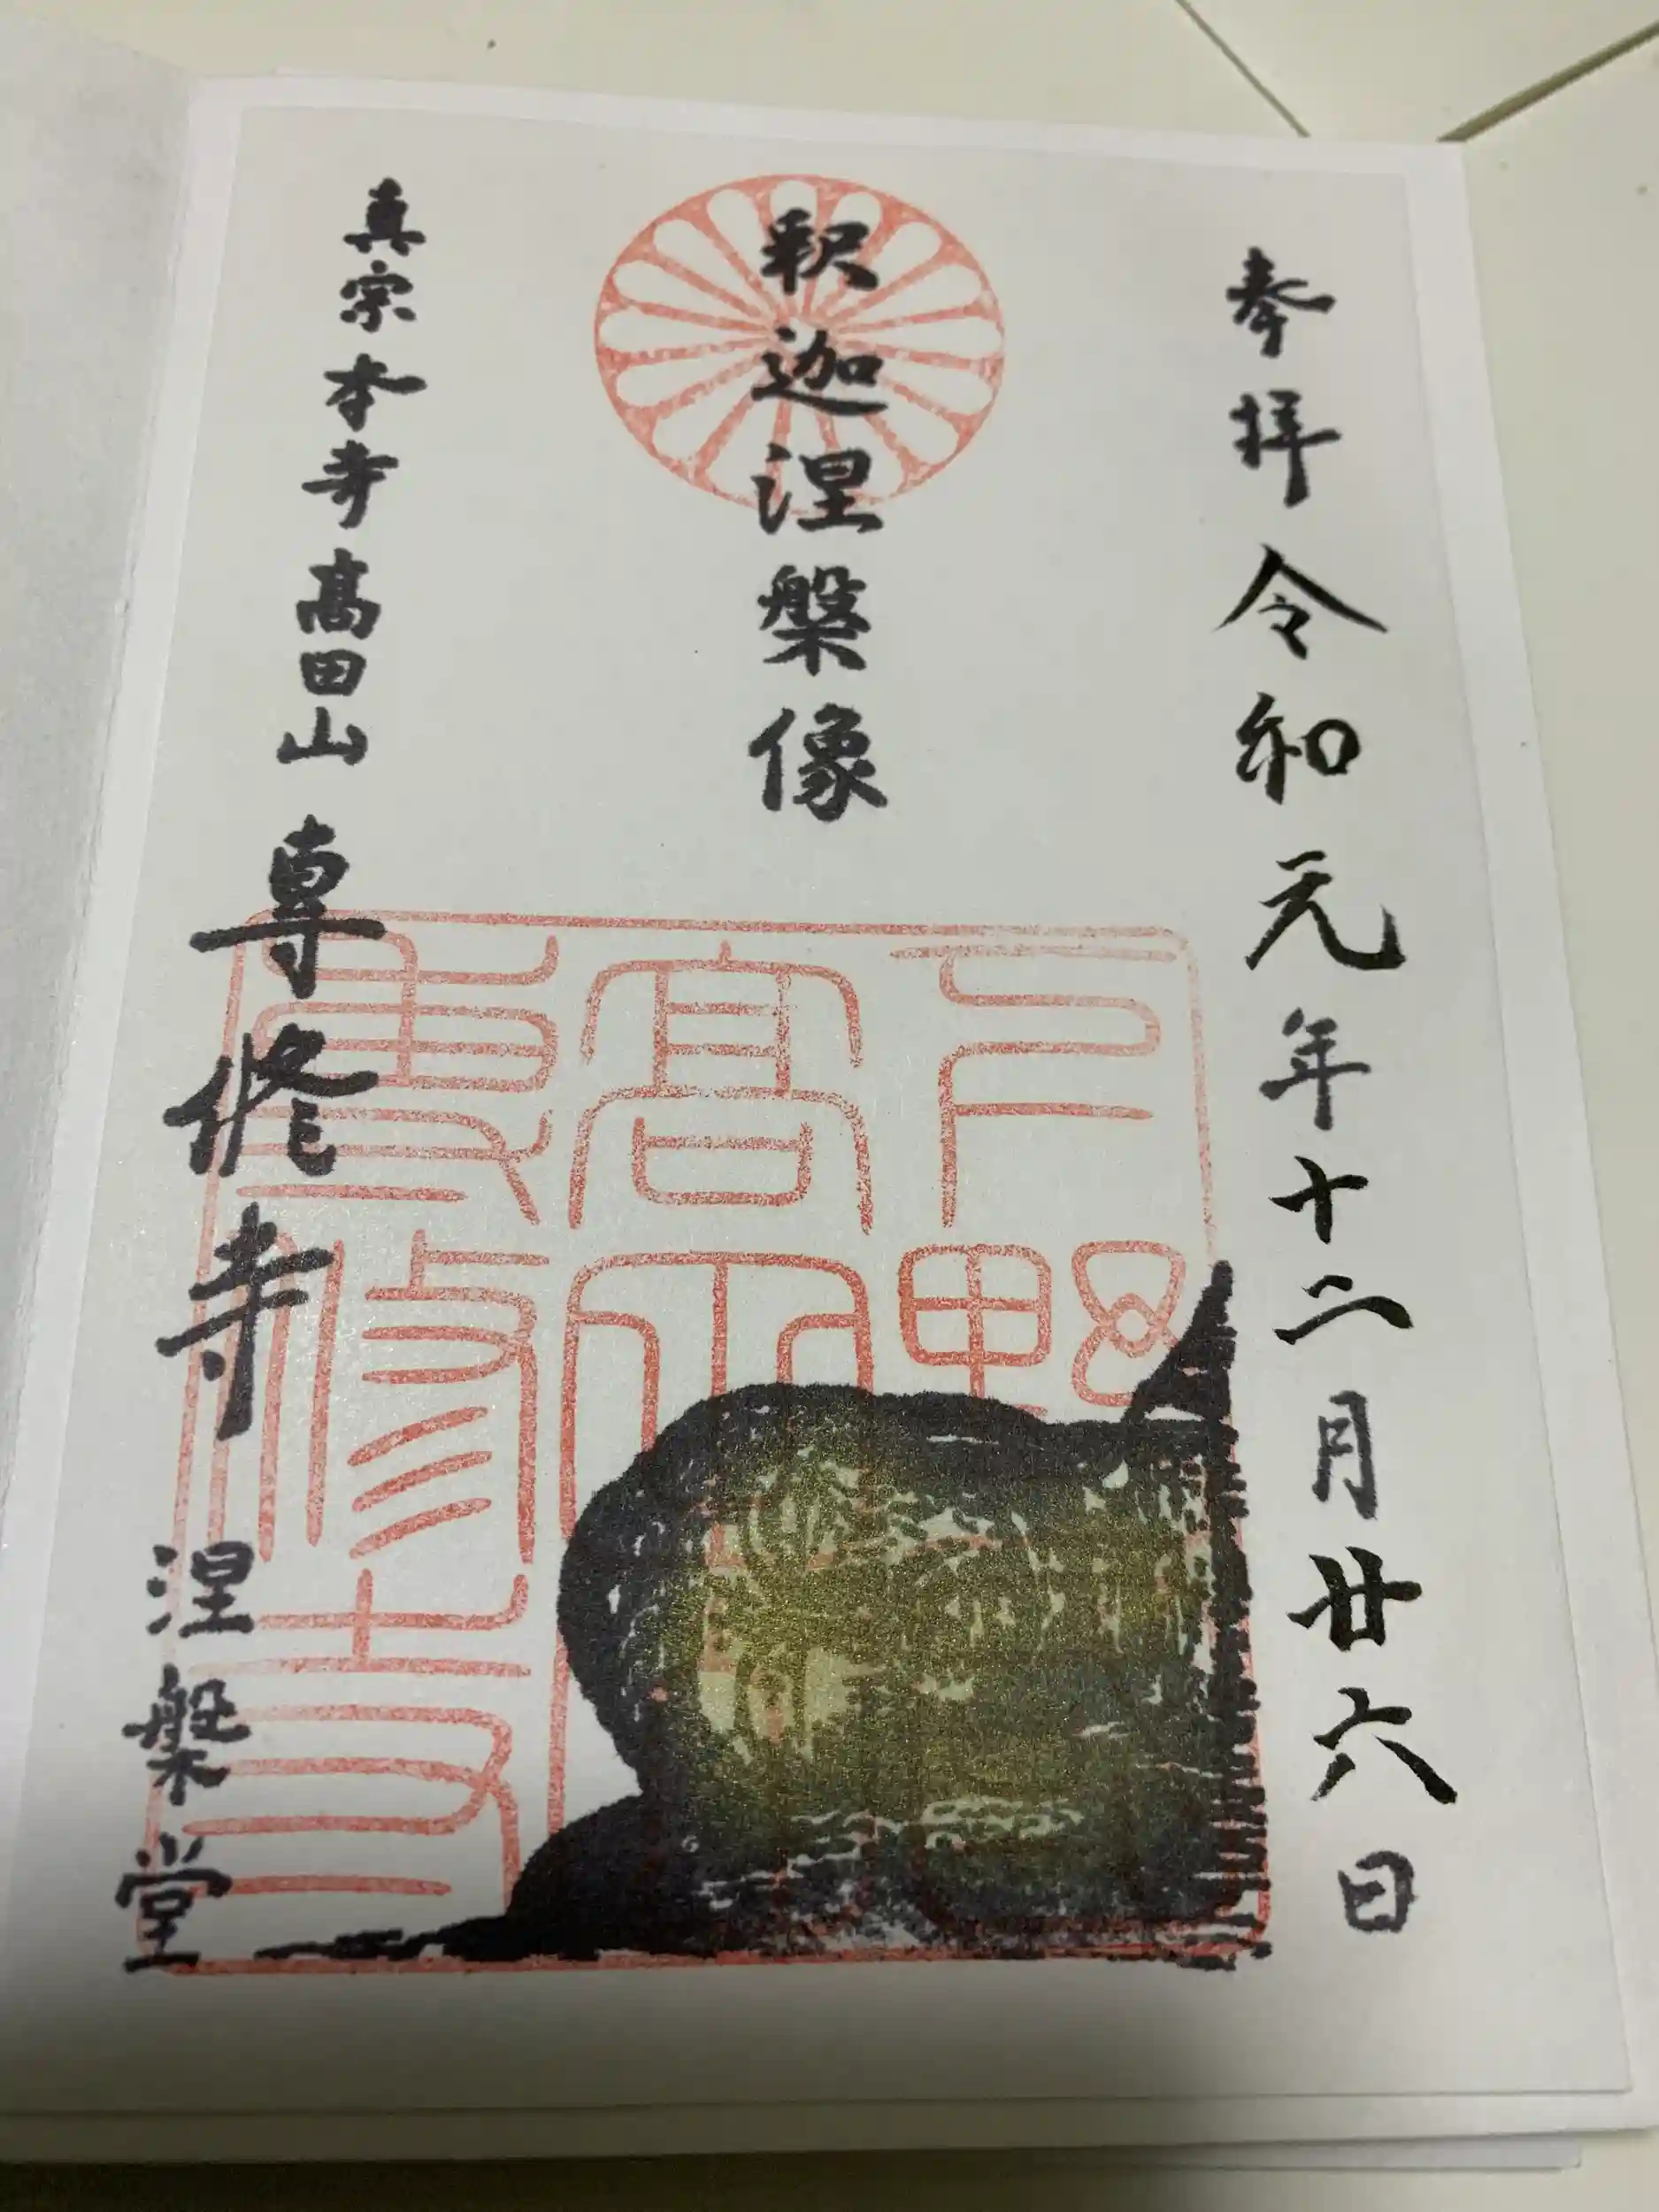 奉拝 令和元年十二月廿六日
釈迦涅槃像
真宗本寺高田山 専修寺 涅槃堂